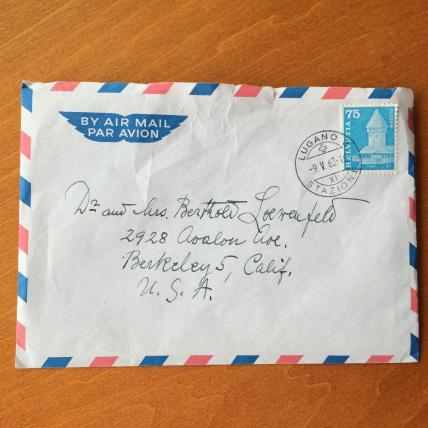 BY AIR MAIL
PAR AVION
75
HELVETIA
LUGANO
-9.V.63-
XI
STAZIONE
Dr. and Mrs. Berthold Loewenfeld
2928 Avalon Ave.
Berkeley 5, Calif.
U. S. A.